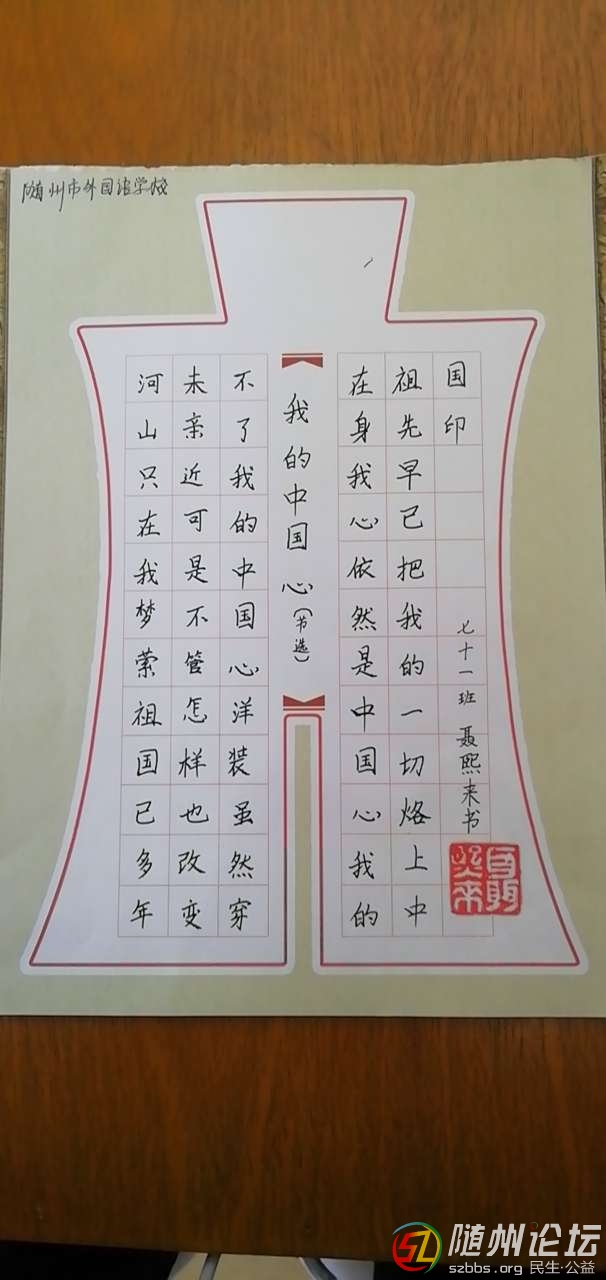 随州市外国语学校
河山只在我梦萦祖国已多年
未亲近可是不管怎样也改变
不了我的中国心洋装虽然穿
我的中国心（节选）
在身我心依然是中国心我的
祖先早已把我的一切烙上中
国印
七十一班 聂熙来书
随州论坛
szbbs.org 民生·公益